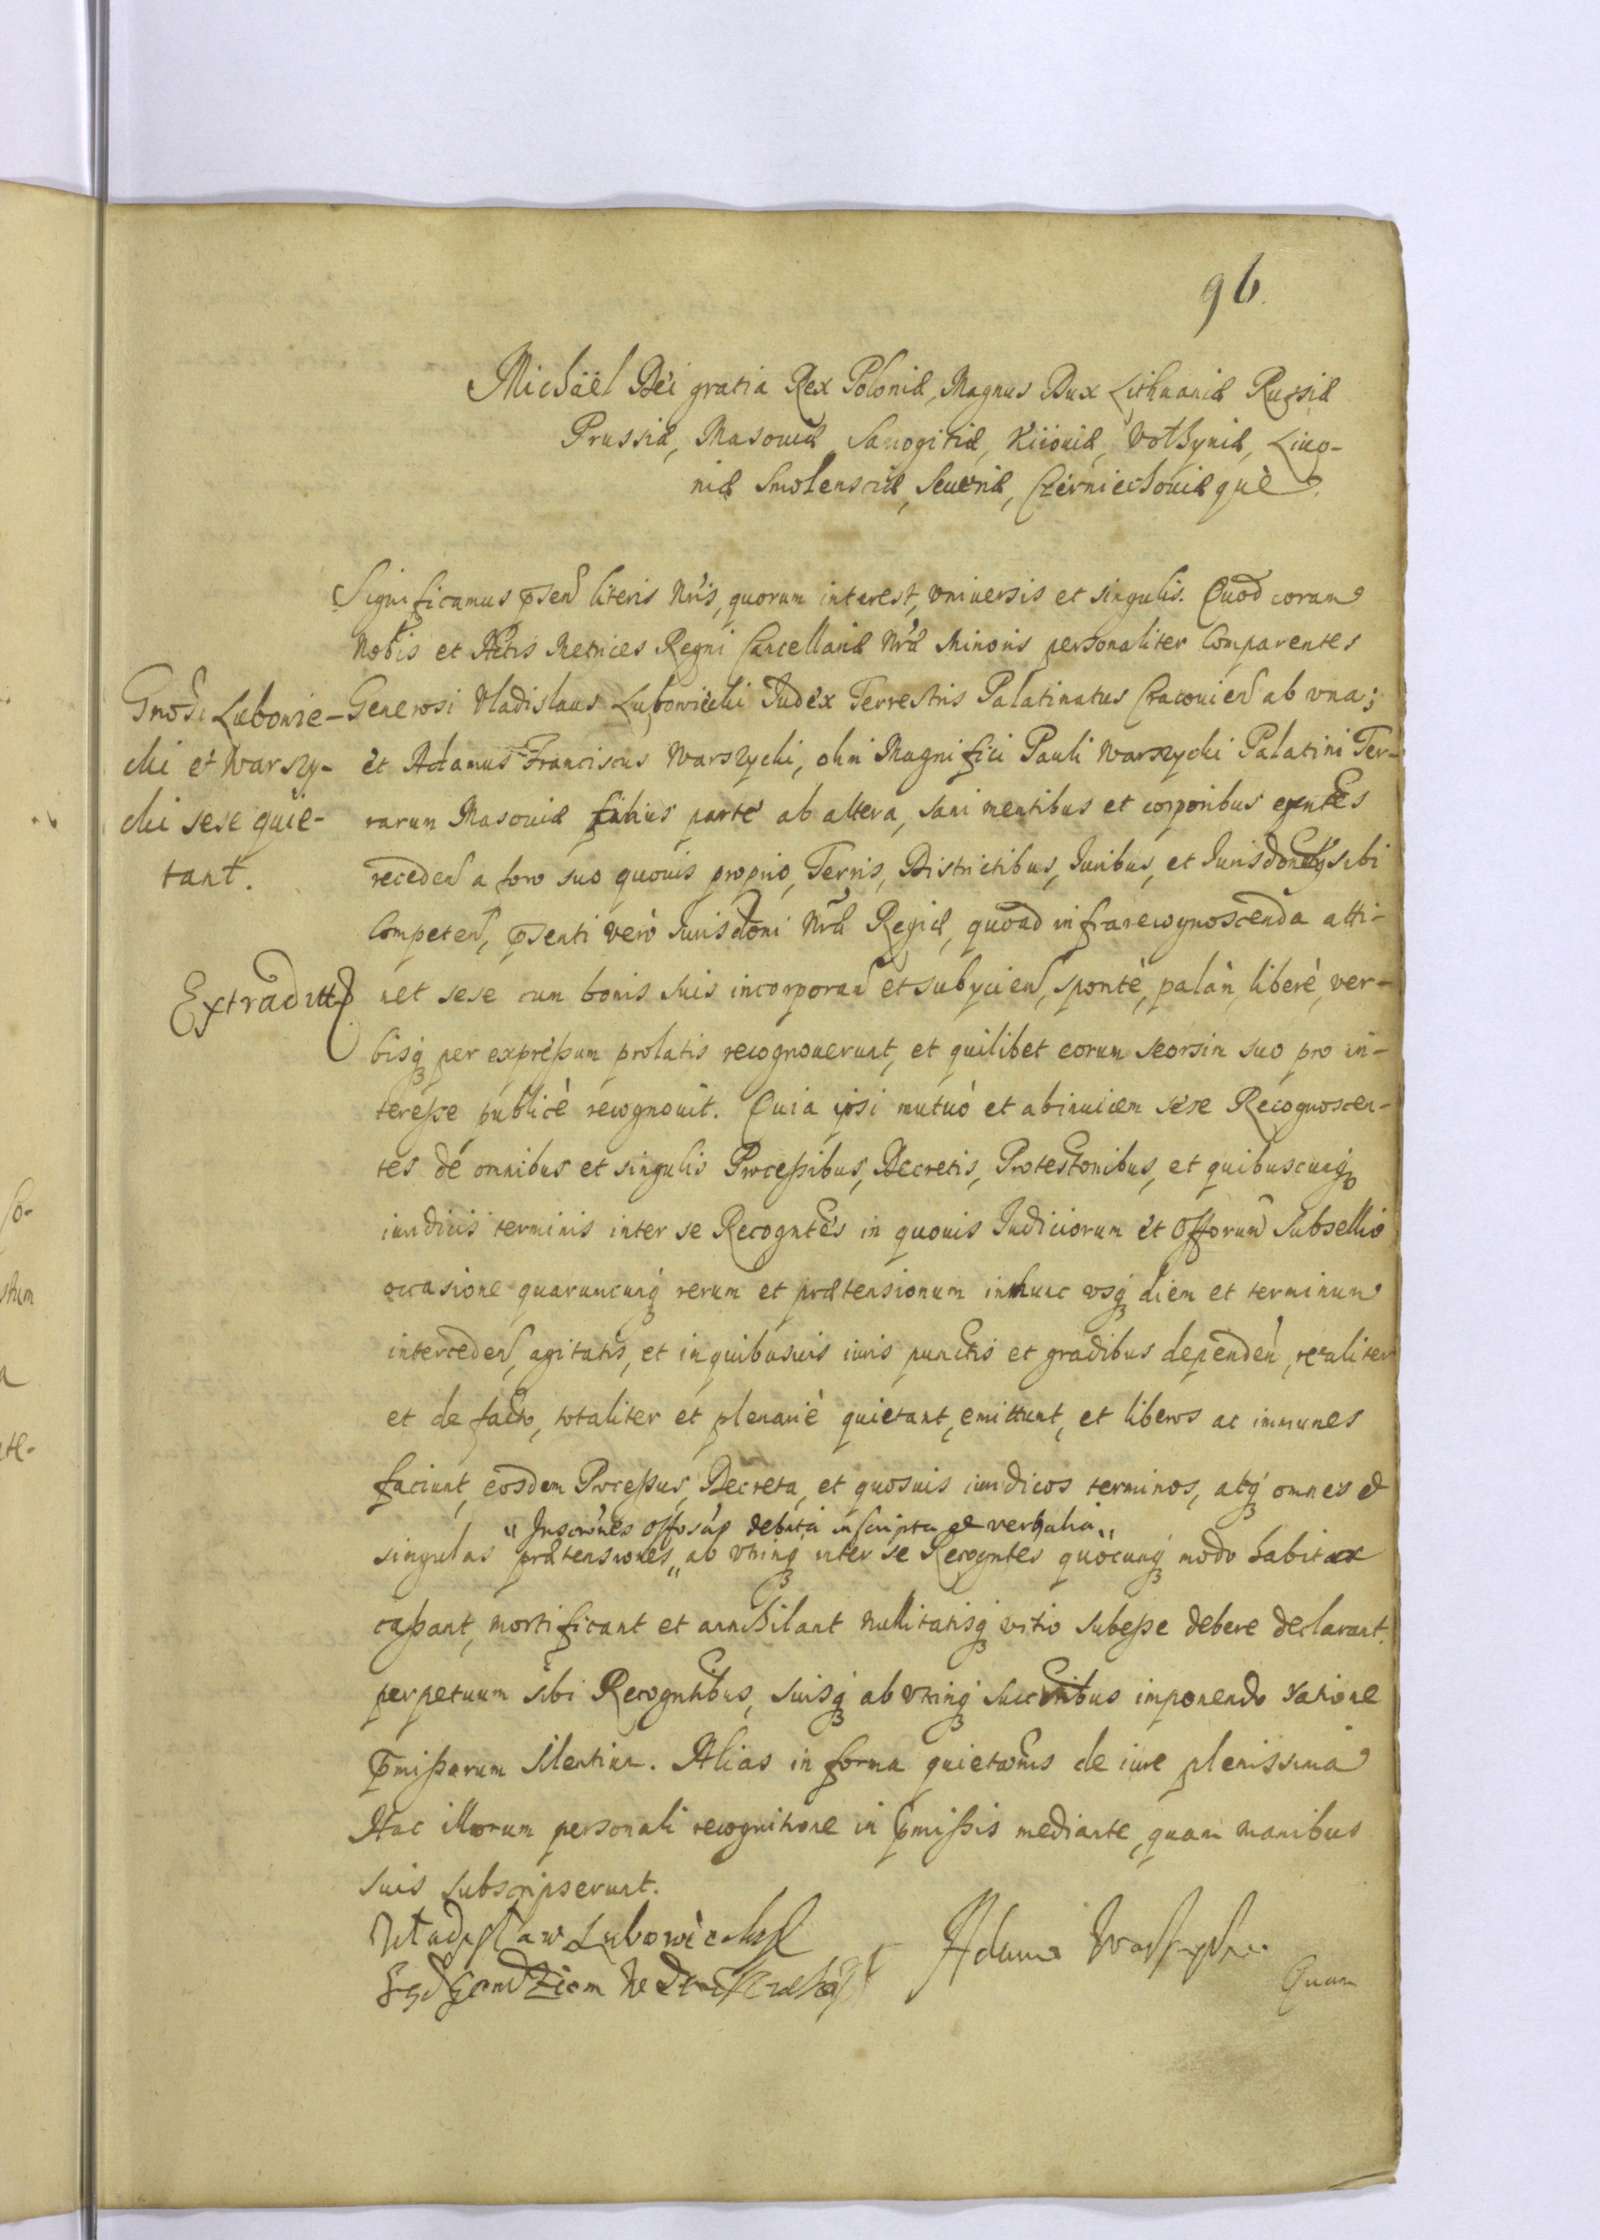 96.
Michaël Dei gratia Rex Poloniæ, Magnus Dux Lithuaniæ Russiæ
Prussiæ, Masouiæ Samogitiæ, Kiiouiæ, Volhyniæ, Liuo-
niæ Smolensciæ, Seueriæ, Czerniechouiæqúe
Significamus pñsen literis Nris, quorum interest, vniuersis et singulis. Quod coram
Nobis et Actis Metrices Regni Cancellariæ Nræ Minoris personaliter Comparentes
Gnosi Lubowie-
cki et Warszy-
cki sese quie-
tant.
Generosi Vladislaus Lubowiecki Judex Terrestris Palatinatus Cracouien ab vna;
et Adamus Franciscus Warszycki, olim Magnifici Pauli Warszycki Palatini Ter-
rarum Masouiæ filius parte ab altera, sani mentibus et corporibus exntes
receden a foro suo quouis proprio, Terris, Districtibus, Iuribus, et Iurisdonibq sibi
Competen, pñsenti verò Iurisdoni Nræ Regiæ, quoad infrarecognoscenda atti-
Extradit
net sese cum bonis suis incorporan et subycien, spontè, palàm liberè, ver-
bisq per expreßum prolatis recognouerunt, et quilibet eorum seorsim suo pro in-
tereße publicè recognouit. Quia ipsi mutuò et abinuicem sese Recognoscen-
tes de omnibus et singulis Proceßibus, Decretis, Protestonibus, et quibuscunq
iuridicis terminis inter se Recogntes in quouis Iudiciorum et Offorum Subsellio
occasione quaruncunq rerum et prætensionum inhunc vsq diem et terminum
interceden, agitatis, et inquibusuis iuris punctis et gradibus dependen, realiter
et de facto, totaliter et plenariè quietant, emittunt, et liberos ac immunes
faciunt, eosdem Proceßus, Decreta, et quosuis iuridicos terminos, atq omnes et
" Inscrones debita inscripta et verbalia "
singulas prætensiones " ab vtrinq inter se Recogntes quocunq modo habitas
caßant, mortificant et annihilant nullitatisq vitio subeße debere declarant.
perpetuum sibi Recogntibus, suisq ab vtrinq succoribus imponendo ratione
pmißorum silentium. Alias in forma quietaonis de iure plenissima
Hac illorum personali recognitione in pmißis mediante, quam manibus
suis subscripserunt.
Władysław Lubowiecki
Adam Warszycki
Quam